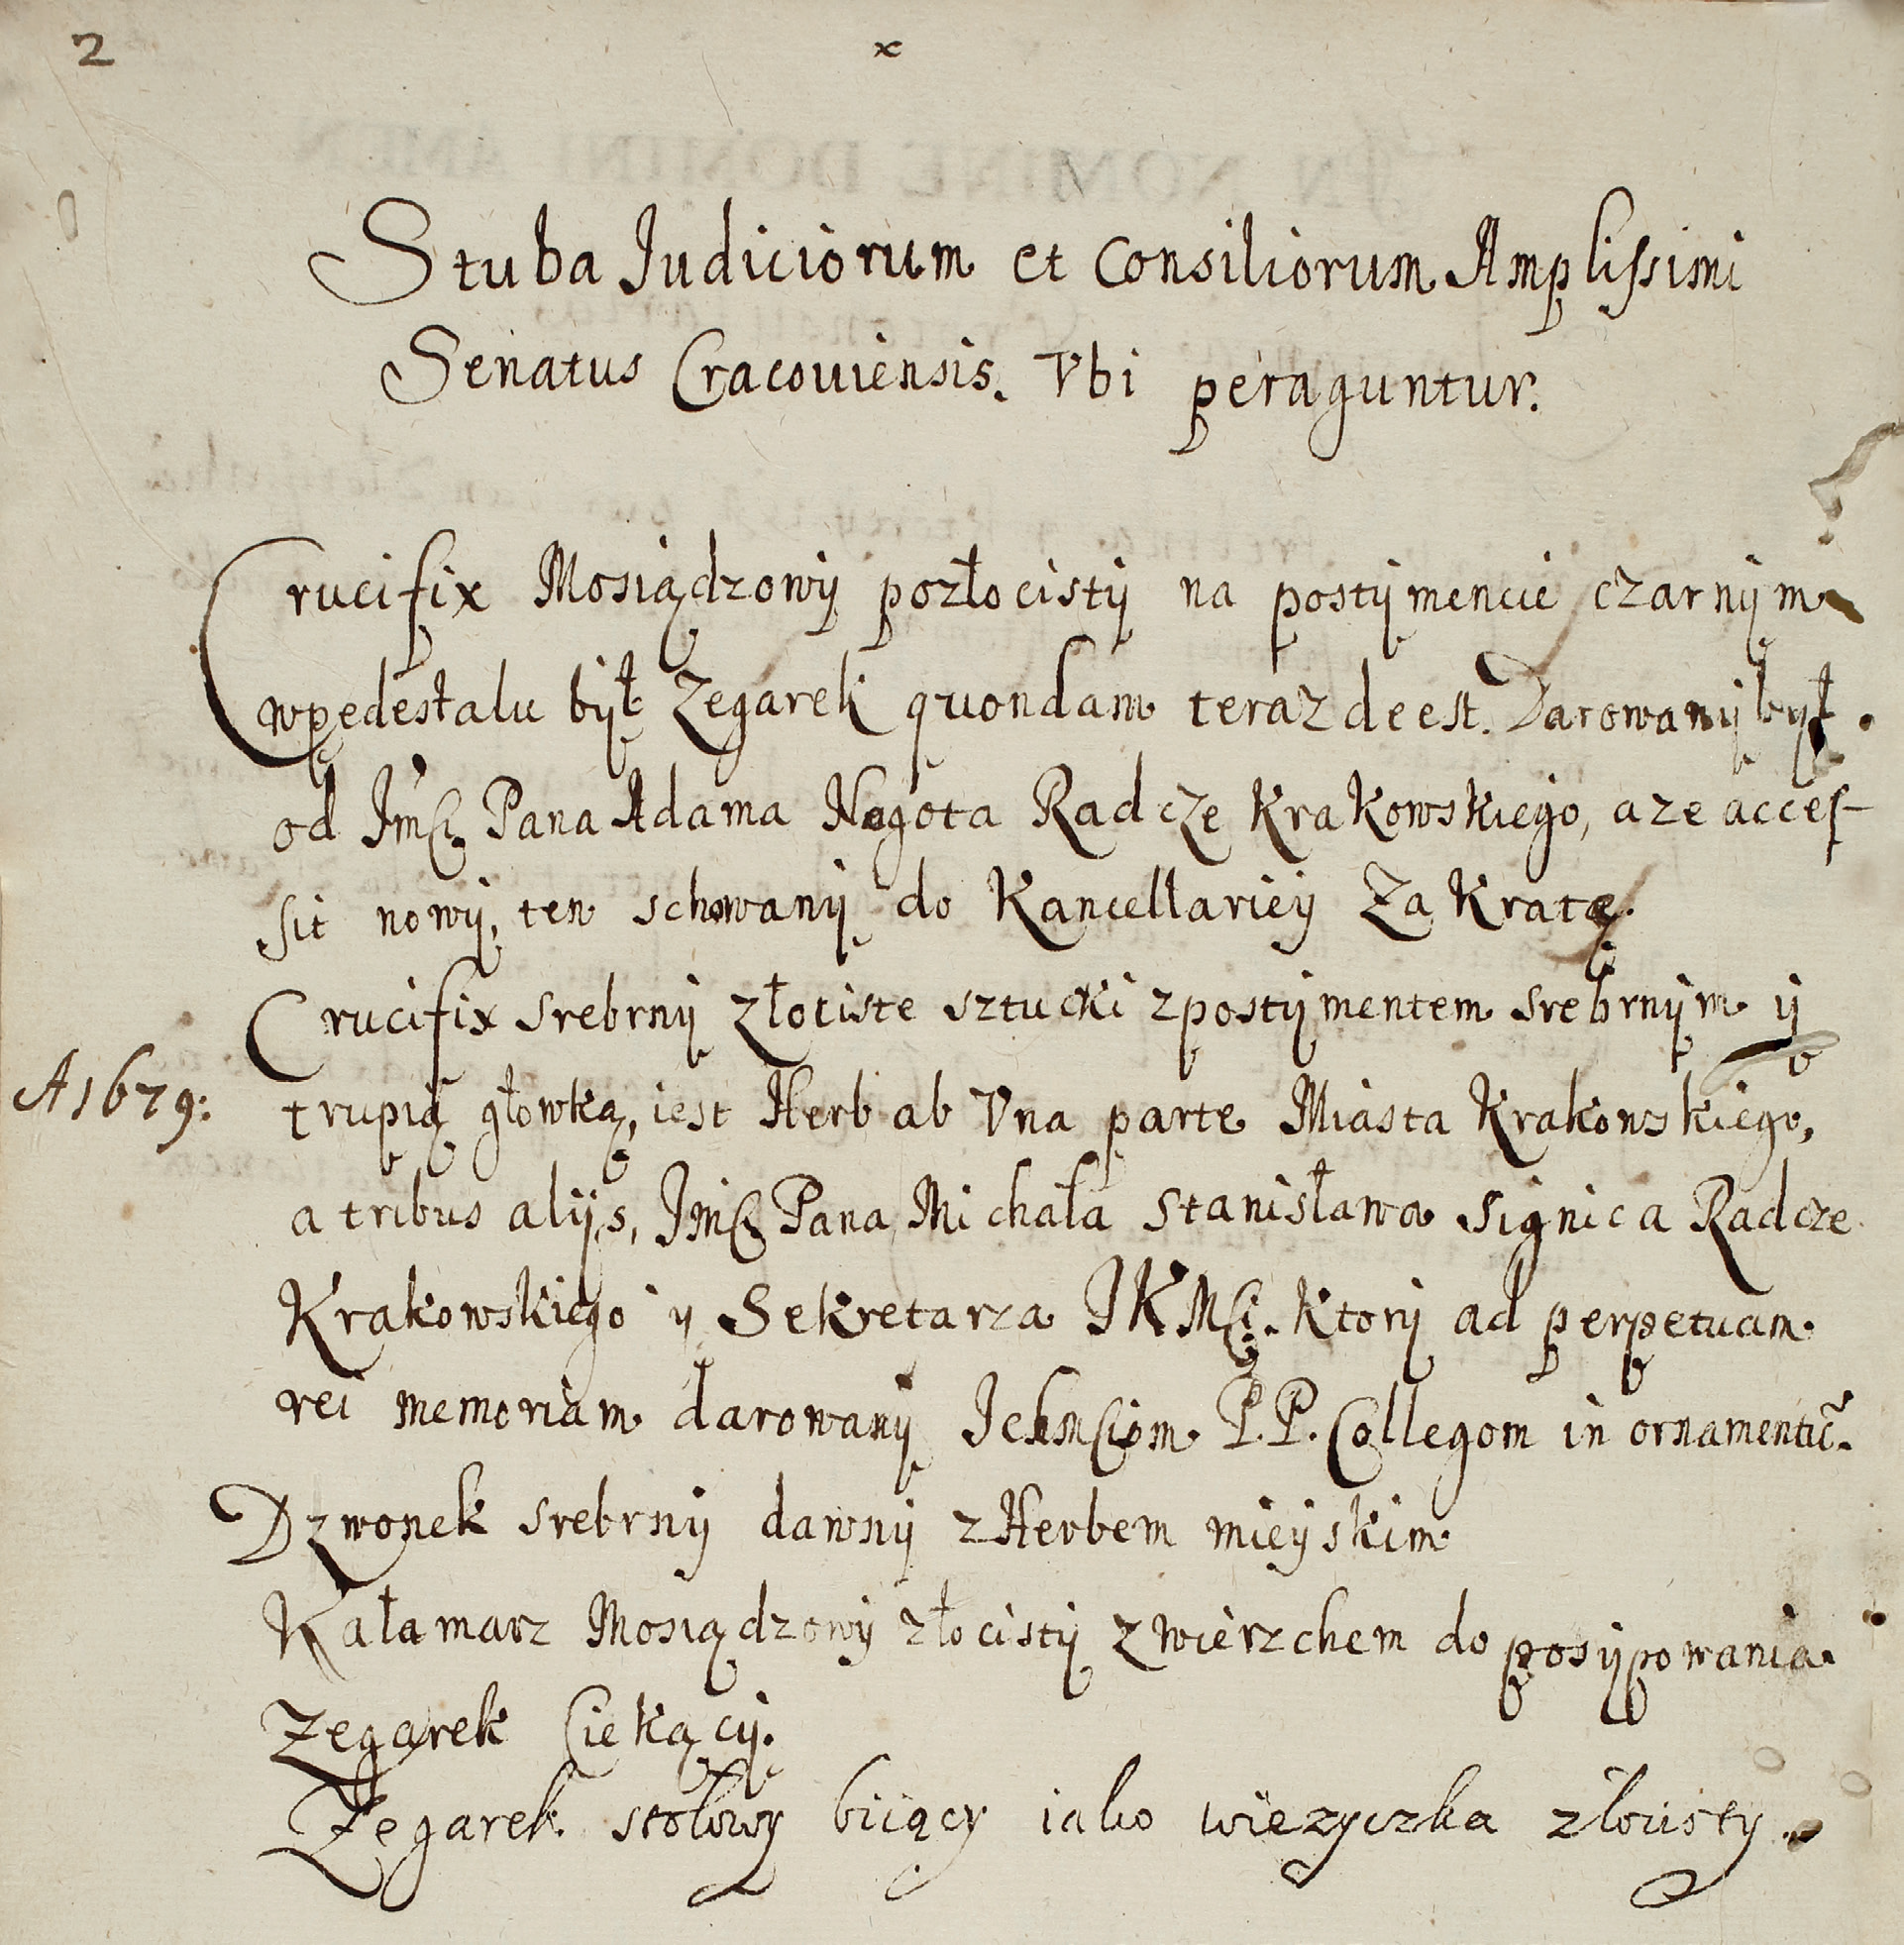 2 x
Stuba Iudiciorum et Consiliorum Amplissimi
Senatus Cracouiensis. Vbi peraguntur.
Crucifix Mosiądzowy pozłocisty na postymencie czarnym
wpedestalu był Zegarek quondam teraz deest. Darowany był.
od Jmći Pana Adama Nagota Radcze Krakowskiego, aze acces-
sit nowy, ten schowany do Kancellariey Za Kratę.
Crucifix srebrny złociste sztucki zpostymentem srebrnym y
A 1679:
trupią głowką, iest Herb ab Vna parte Miasta Krakowskiego,
a tribus alijs, Jmći Pana Michała Stanisława Signica Radcze
Krakowskiego y Sekretarza JKMći. Ktory ad perpetuam
rei memoriam darowany Ichmciom P.P. Collegom in
Dzwonek srebrny dawny zHerbem mieyskim
Kałamarz Mosiądzowy złocisty zwierzchem do posypowania
Zegarek Ciekący.
Zegarek stołowy biiący iako wiezyczka złocisty.